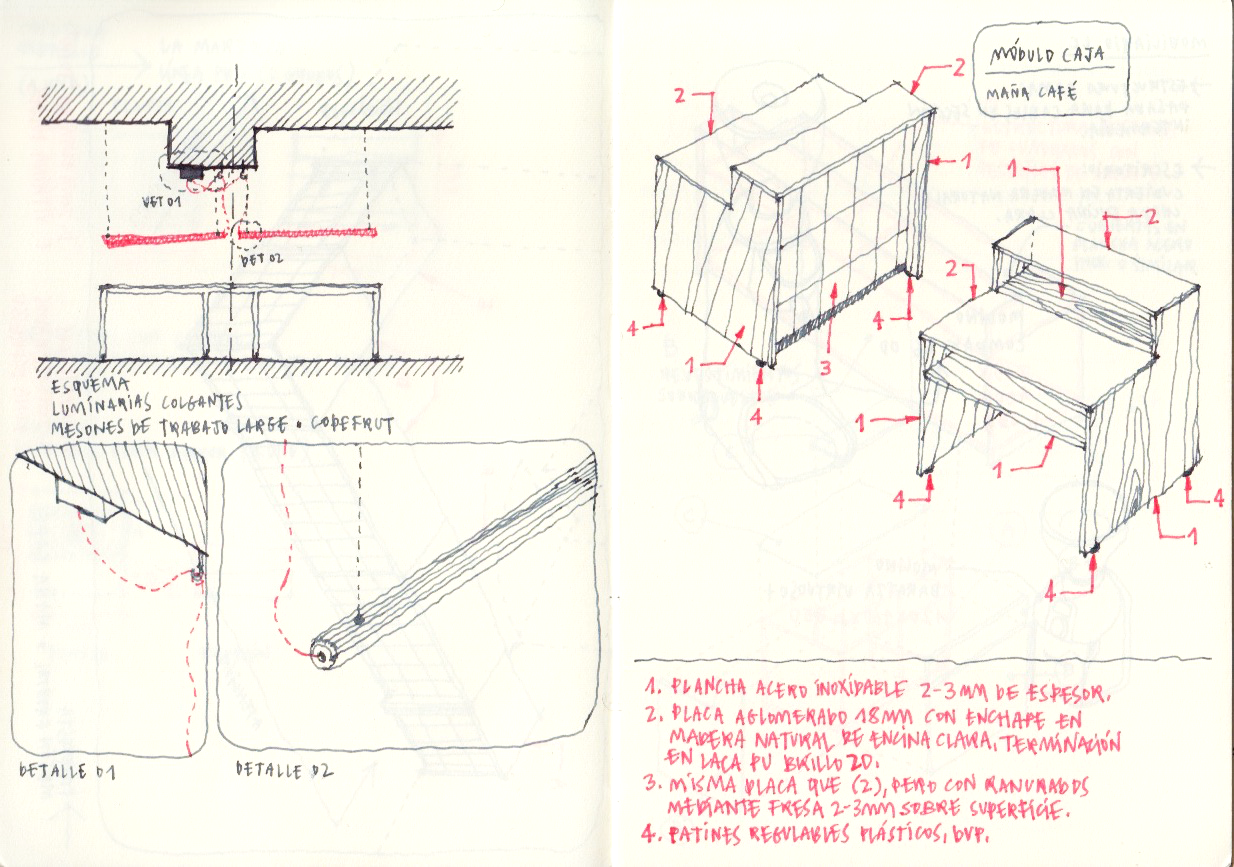 DET 01
DET 02
ESQUEMA
LUMINARIAS COLGANTES
MESONES DE TRABAJO LARGE • COPEFRUT
DETALLE 01
DETALLE 02
MÓDULO CAJA
MAÑA CAFÉ
2
2
1
1
2
2
4
1
3
4
4
1
1
4
4
1
4
1. PLANCHA ACERO INOXIDABLE 2-3MM DE ESPESOR.
2. PLACA AGLOMERADO 18MM CON ENCHAPE EN
MADERA NATURAL DE ENCINA CLARA, TERMINACIÓN
EN LACA PU BRILLO 20.
3. MISMA PLACA QUE (2), PERO CON RANURADOS
MEDIANTE FRESA 2-3MM SOBRE SUPERFICIE.
4. PATINES REGULABLES PLÁSTICOS, DVP.